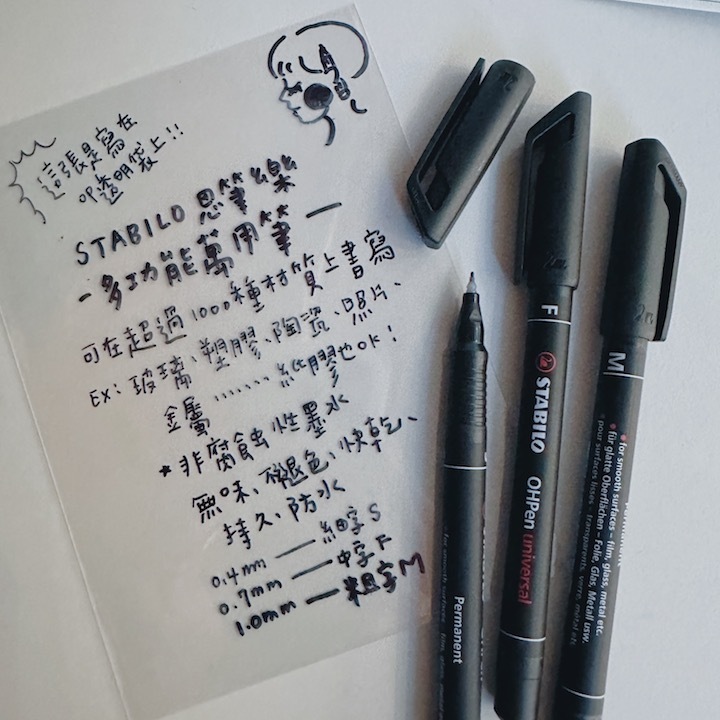 這張是寫在
透明袋上!!
STABILO 思筆樂
-多功能萬用筆-
可在超過1000種材質上書寫
EX: 玻璃、塑膠、陶瓷、照片、
金屬......紙膠也OK!
*非腐蝕性墨水
無味、不褪色、快乾、
持久、防水
0.4mm — 細字 S
0.7mm — 中字 F
1.0mm — 粗字 M
Permanent
F STABILO OHPen universal
M
Permanent
for smooth surfaces – film, glass, metal etc.
für glatte Oberflächen – Folie, Glas, Metall usw.
pour surfaces lisses – transparents, verre, métal etc